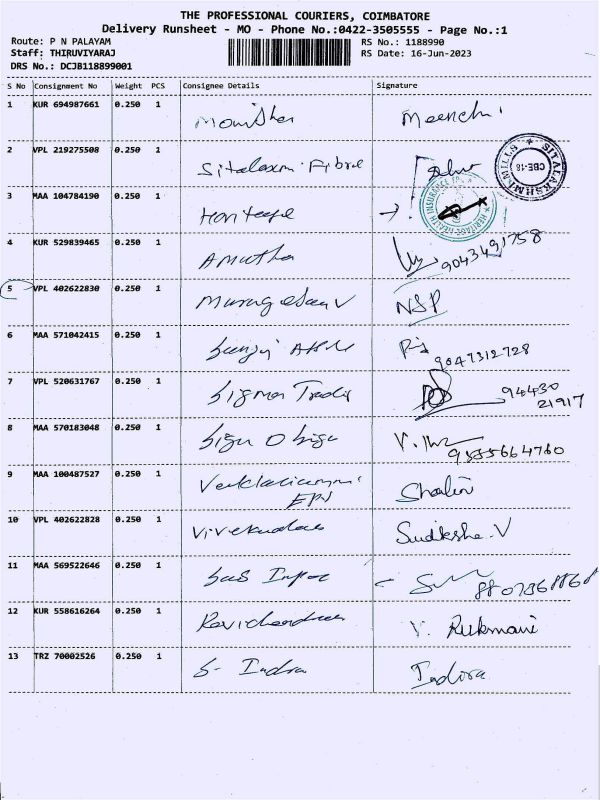 THE PROFESSIONAL COURIERS, COIMBATORE
Delivery Runsheet - MO - Phone No.:0422-3505555 - Page No.:1
Route: P N PALAYAM
RS No.: 1188990
Staff: THIRUVIYARAJ
RS Date: 16-Jun-2023
DRS No.: DCJB118899001
S No Consignment No Weight PCS Consignee Details Signature
1 KUR 694987661 0.250 1 Meenchi
2 VPL 219275508 0.250 1 Sitalaxmi Fibre
SITALAKSHMI MILLS
CBE-18
3 MAA 104784190 0.250 1
HERITAGE HEALTH INSURANCE
4 KUR 529839465 0.250 1 Amutha 9043491758
5 VPL 402622830 0.250 1 Murugesan V NSP
6 MAA 571042415 0.250 1 9047312728
7 VPL 520631767 0.250 1 Sigma 94430
21917
8 MAA 570183048 0.250 1
9 MAA 100487527 0.250 1 Shalin
10 VPL 402622828 0.250 1 Sudiksha.V
11 MAA 569522646 0.250 1
12 KUR 558616264 0.250 1 Ravichandran V. Rukmani
13 TRZ 70002526 0.250 1 S- Indra Indira